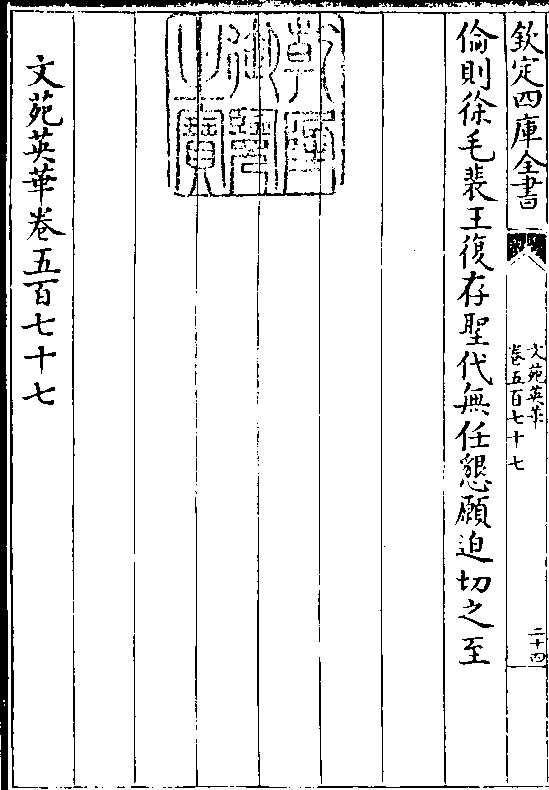 欽定四庫全書
文苑英華
卷五百七十七
二十四
倫則徐毛裴王復存聖代無任懇願迫切之至
乾隆御覽之寶
文苑英華卷五百七十七